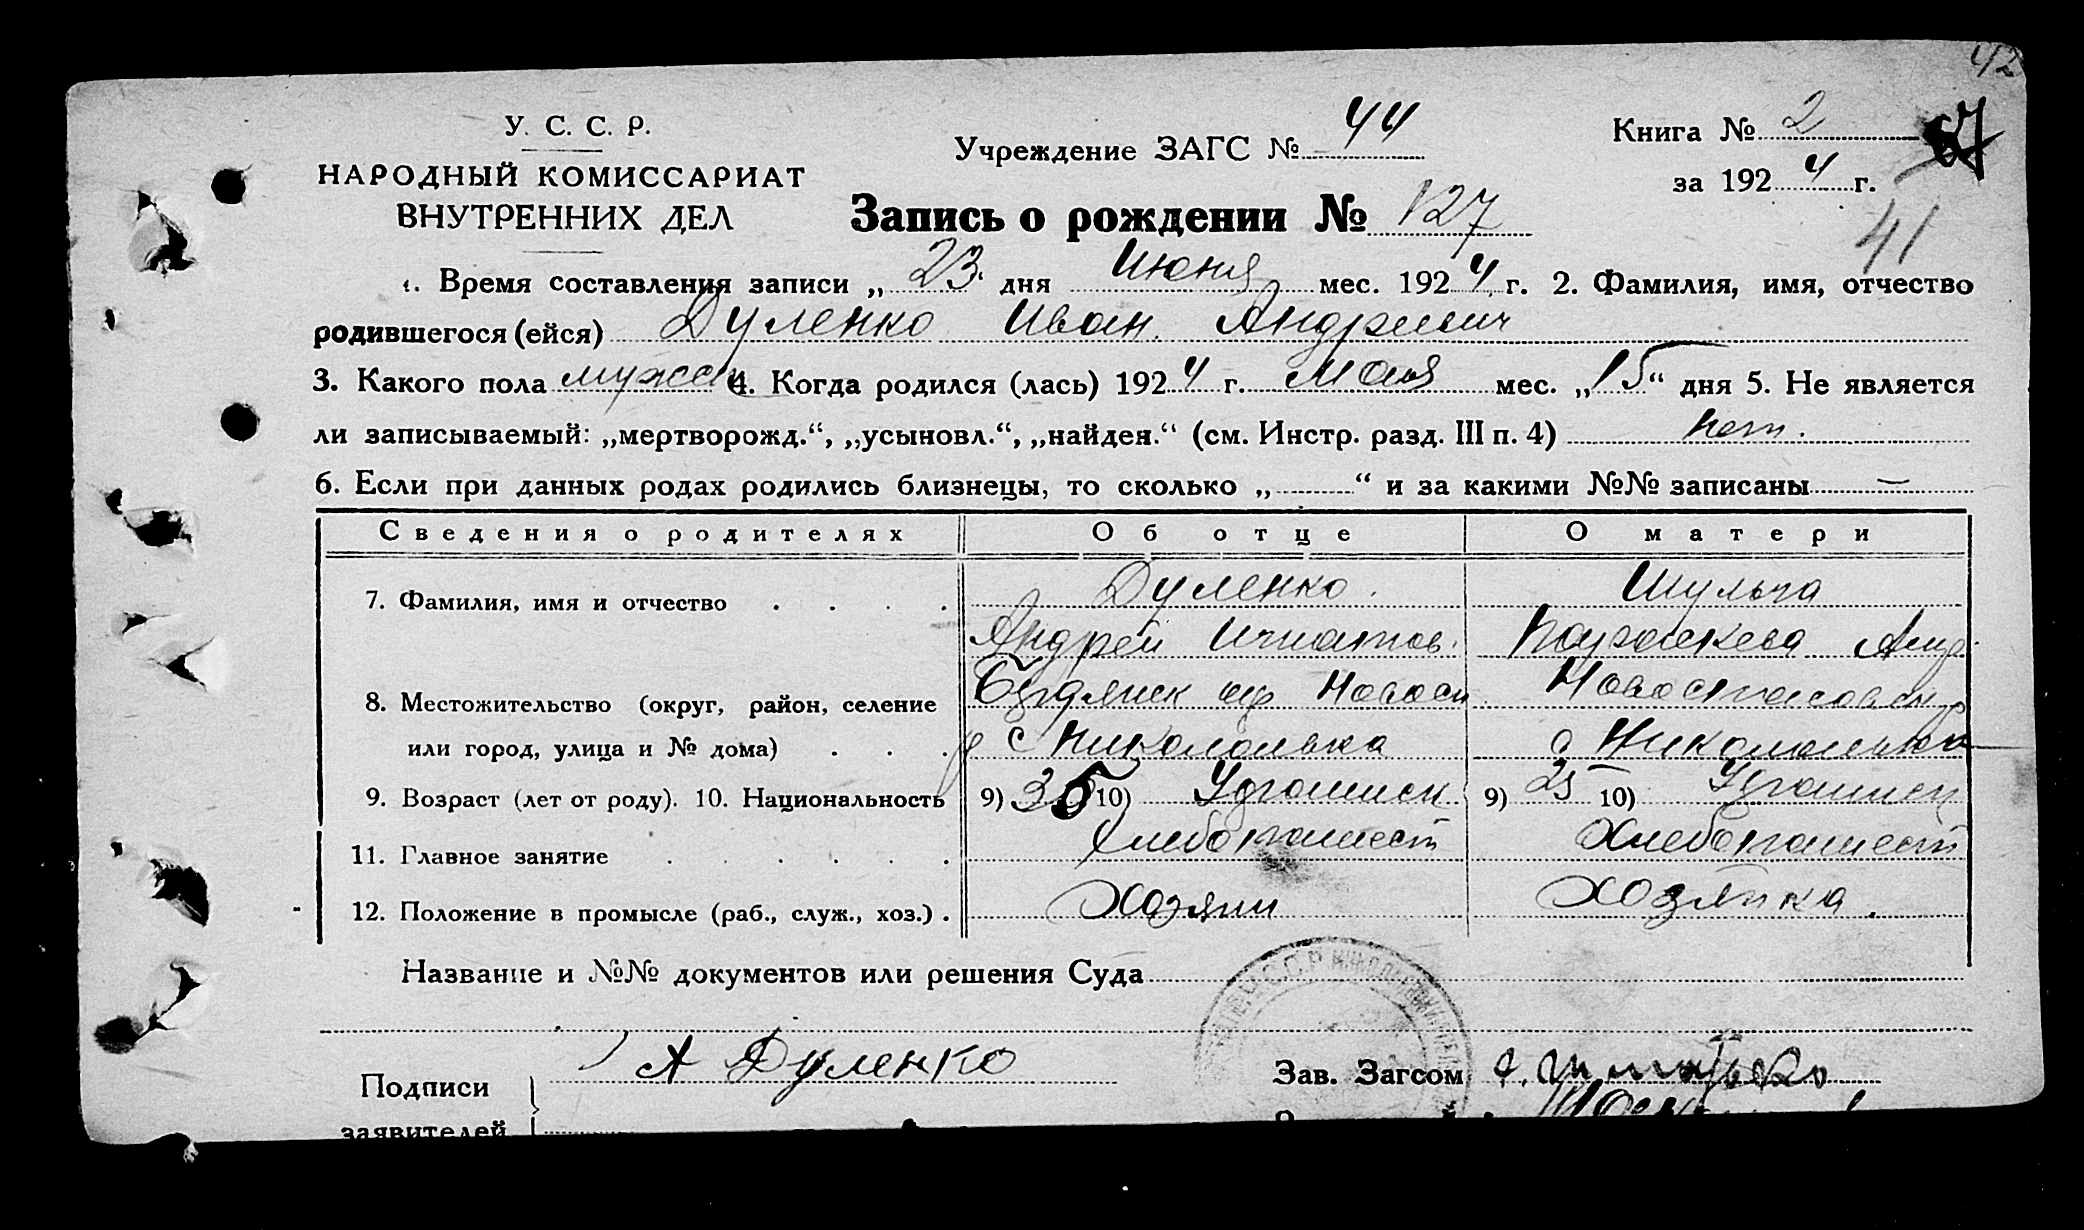 42
У. С. С. Р.
НАРОДНЫЙ КОМИССАРИАТ
ВНУТРЕННИХ ДЕЛ
Учреждение ЗАГС № 44
Книга № 2
за 1924 г.
41
Запись о рождении № 127
1. Время составления записи „ 23. дня Июня мес. 1924 г. 2. Фамилия, имя, отчество
родившегося (ейся) Дуленко Иван. Андреевич
3. Какого пола мужск 4. Когда родился (лась) 1924 г. Мая мес. „15“ дня 5. Не является
ли записываемый: „мертворожд.“, „усыновл.“, „найден.“ (см. Инстр. разд. III п. 4) нет.
6. Если при данных родах родились близнецы, то сколько „ “ и за какими №№ записаны —
Сведения о родителях Об отце О матери
7. Фамилия, имя и отчество Дуленко. Шульга
Андрей Игнатов.
8. Местожительство (округ, район, селение Новоспасовск
или город, улица и № дома) с Николаевка
9. Возраст (лет от роду). 10. Национальность 9) 10) 9) 25 10)
11. Главное занятие Хлебопашест Хлебопашест
12. Положение в промысле (раб., служ., хоз.) . Хозяин Хозяйка.
Название и №№ документов или решения Суда
Подписи А Дуленко Зав. Загсом
заявителей